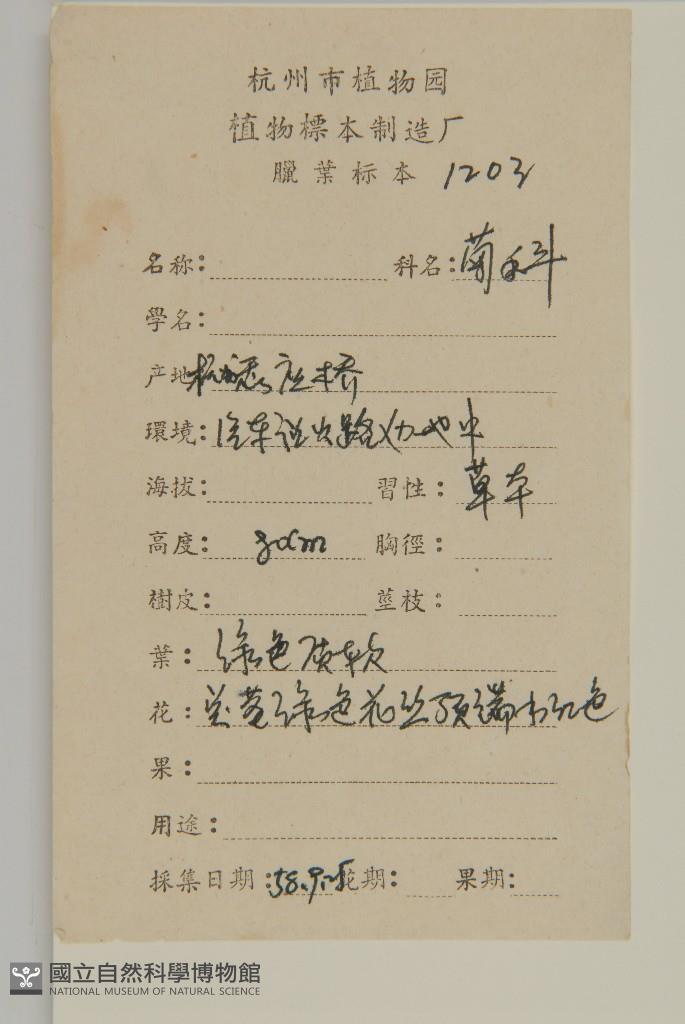 杭州市植物园
植物標本制造厂
臘葉标本 1203
名称： 科名：菊科
學名：
产地 杭州 桥
環境：汽车 路 地中
海拔： 習性：草本
高度： 胸徑：
樹皮： 莖枝：
葉：绿色质软
花：花萼绿色花丝顶端 红色
果：
用途：
採集日期：58.9. 花期： 果期：
國立自然科學博物館
NATIONAL MUSEUM OF NATURAL SCIENCE